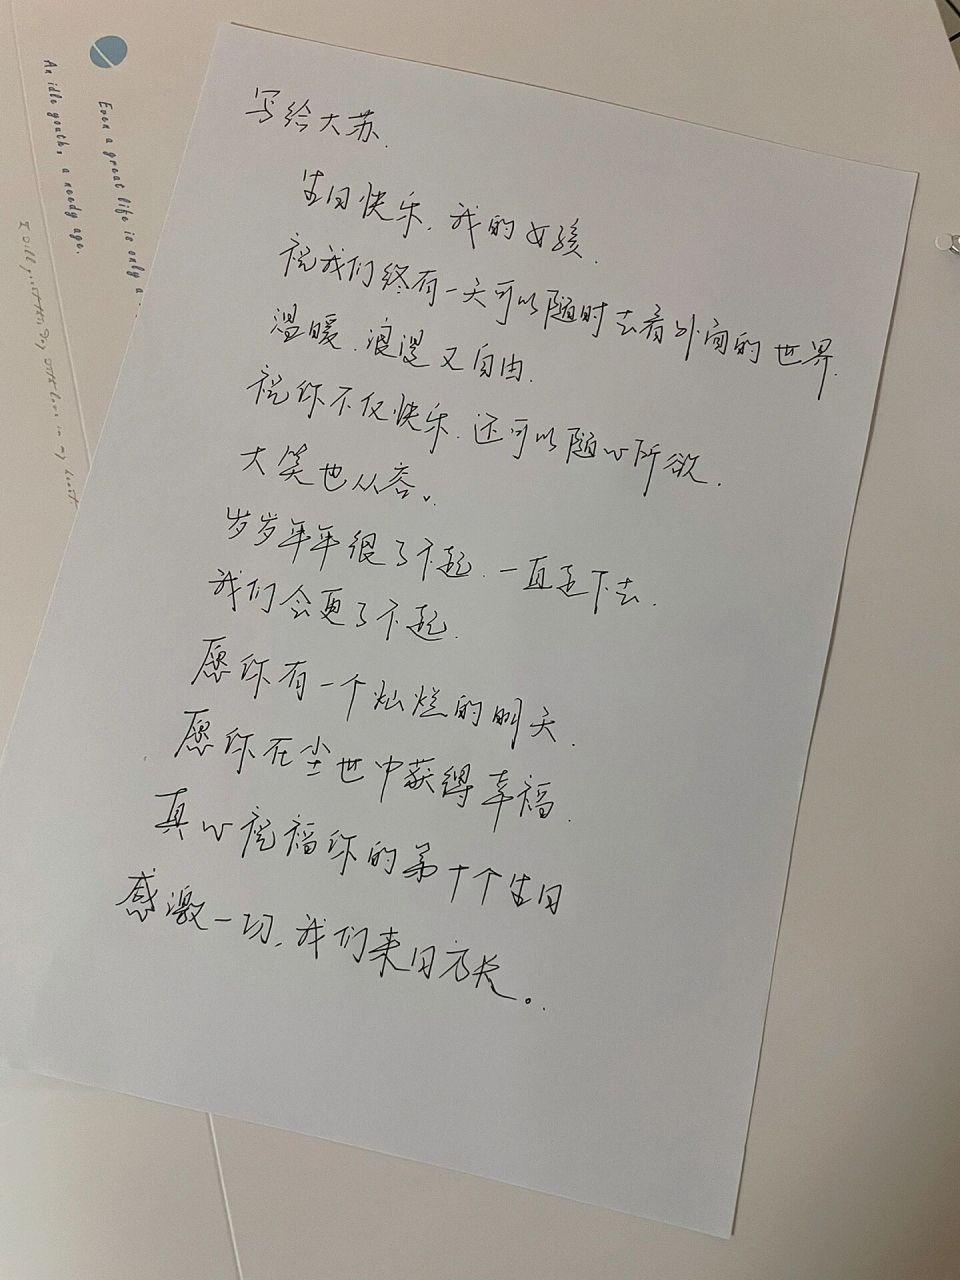 写给大苏.
生日快乐.我的女孩.
祝我们终有一天可以随时去看外面的世界.
温暖.浪漫又自由.
祝你不仅快乐.还可以随心所欲.
大笑也从容.
岁岁年年很了不起.一直走下去.
我们会更了不起.
愿你有一个灿烂的明天.
愿你在尘世中获得幸福.
真心祝福你的第十个生日
感激一切,我们来日方长。
Even a great life is only a
An idle youth, a needy age.